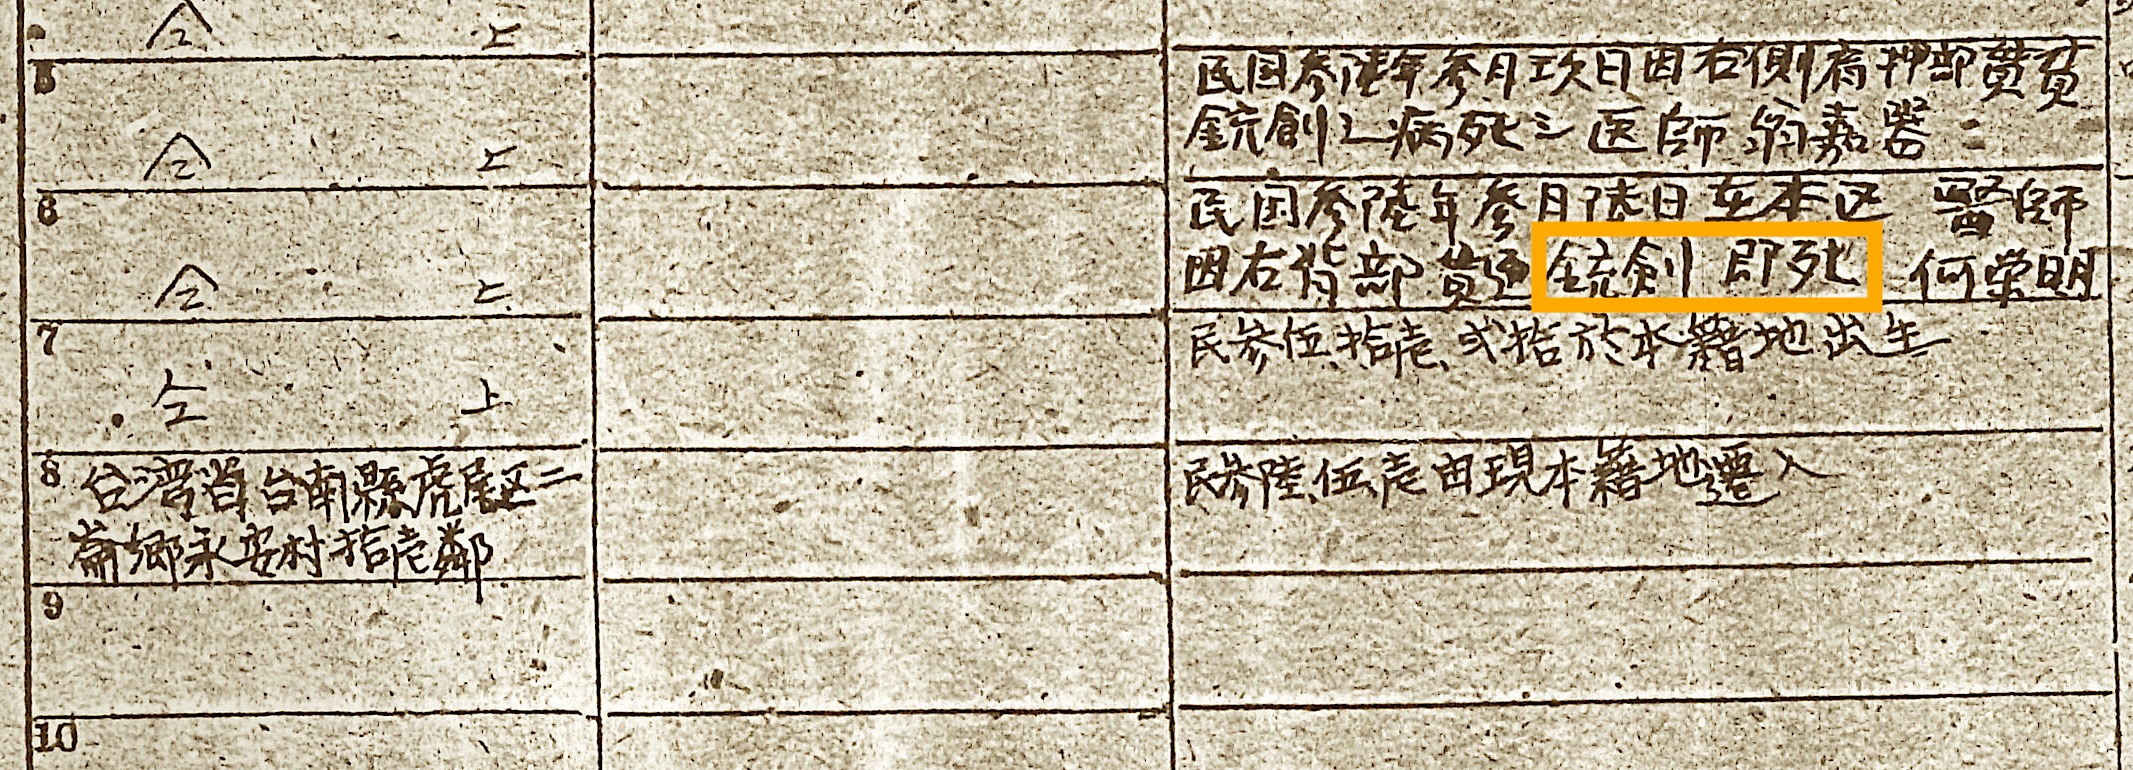 仝 上
5
仝 上
民国參陸年參月玖日因右側肩押部貫
銃創ニ病死ニ医師翁嘉器ニ
6
仝 上
民国參陸年參月陸日在本区 醫師
因右背部貫通銃創 即死 何栄明
7
仝 上
民參伍、拾壱、弍拾於本籍地出生
8
台湾省台南縣虎尾区二
崙鄉永安村拾壱鄰
民參陸、伍、壱由現本籍地遷入
9
10